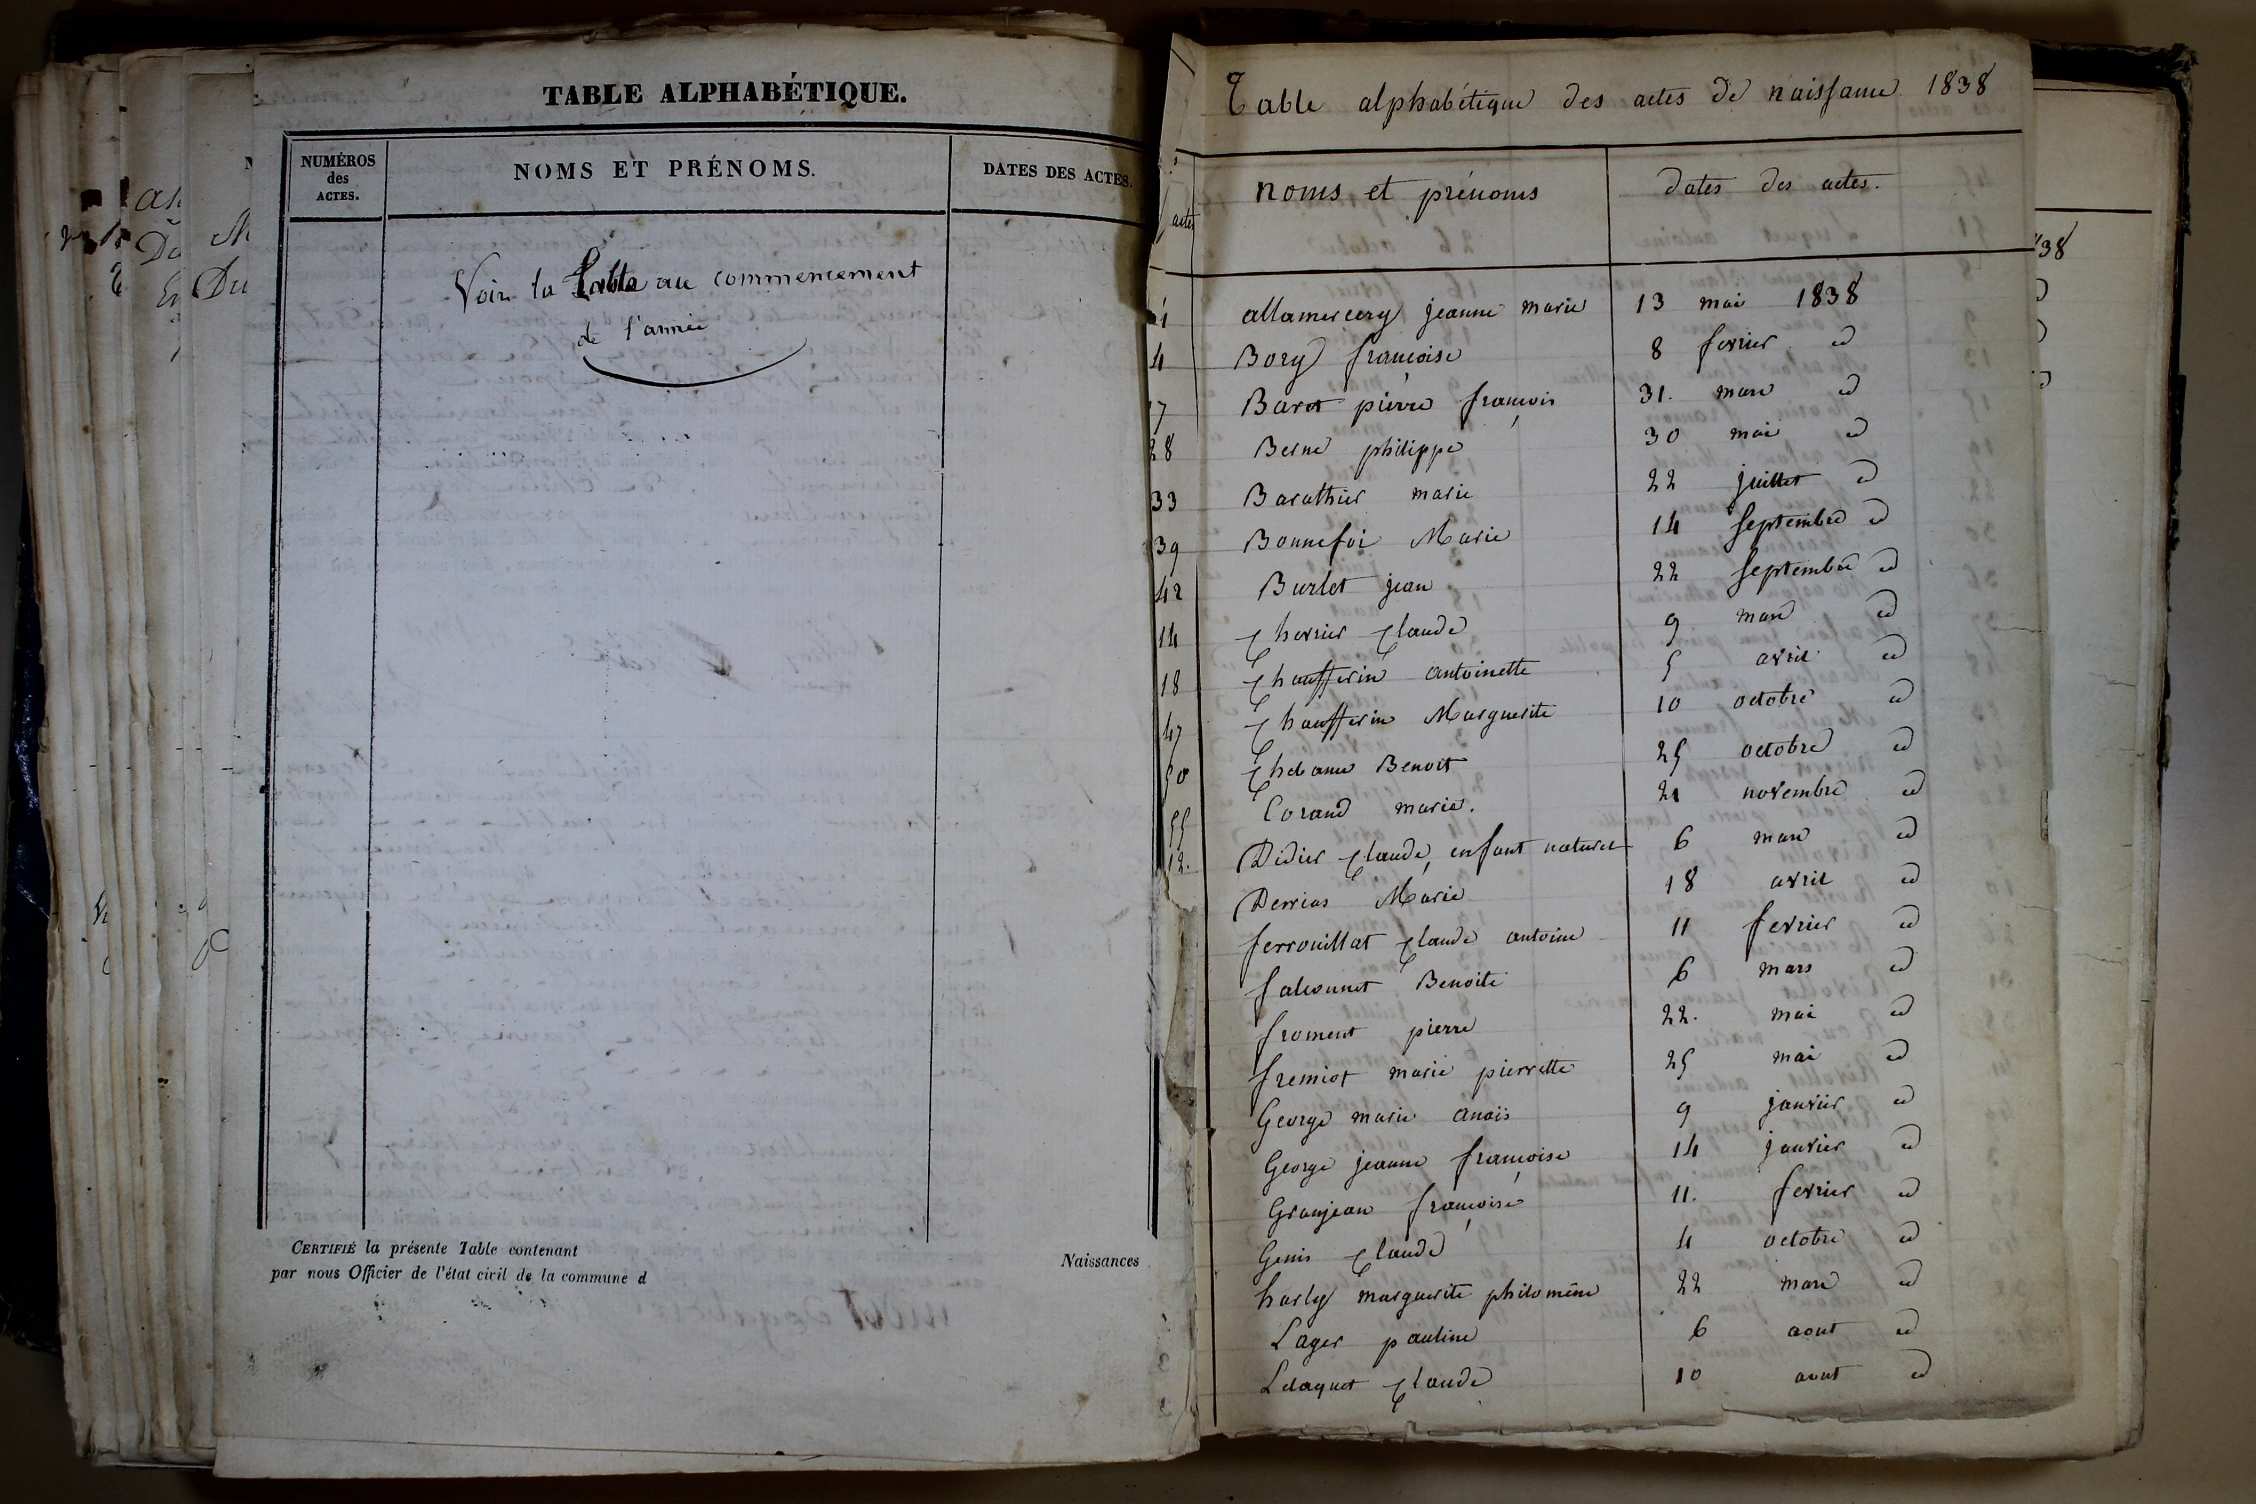 TABLE ALPHABÉTIQUE.
NUMÉROS
des
ACTES.
NOMS ET PRÉNOMS.
DATES DES ACTES.
Voir la table au commencement
de l'année
CERTIFIÉ la présente Table contenant
Naissances
par nous Officier de l'état civil de la commune d
Table alphabétique des actes de naissance 1838
actes
noms et prénoms
dates des actes.
allamercery jeanne marie 13 mai 1838
4 Bory françoise 8 fevrier id
17 Baret pierre françois 31. mars id
28 Berne philippe 30 mai id
33 Barathier marie 22 juillet id
39 Bonnefoi Marie 14 septembre id
42 Burlet jean 22 septembre id
14 Chervier Claude 9 mars id
18 Chaufferin antoinette 5 avril id
47 Chaufferin Marguerite 10 octobre id
50 Benoit 25 octobre id
55 Corand marie. 21 novembre id
12. Didier Claude, enfant naturel 6 mars id
Derrias Marie 18 avril id
ferrouillat Claude antoine 11 fevrier id
falconnet Benoite 6 mars id
froment pierre 22. mai id
fremiot marie pierrette 25 mai id
George marie anaïs 9 janvier id
George jeanne françoise 14 janvier id
Granjean françoise 11. fevrier id
Genis Claude 4 octobre id
harly marguerite philomène 22 mars id
Lager pauline 6 aout id
Claude 10 aout id
38